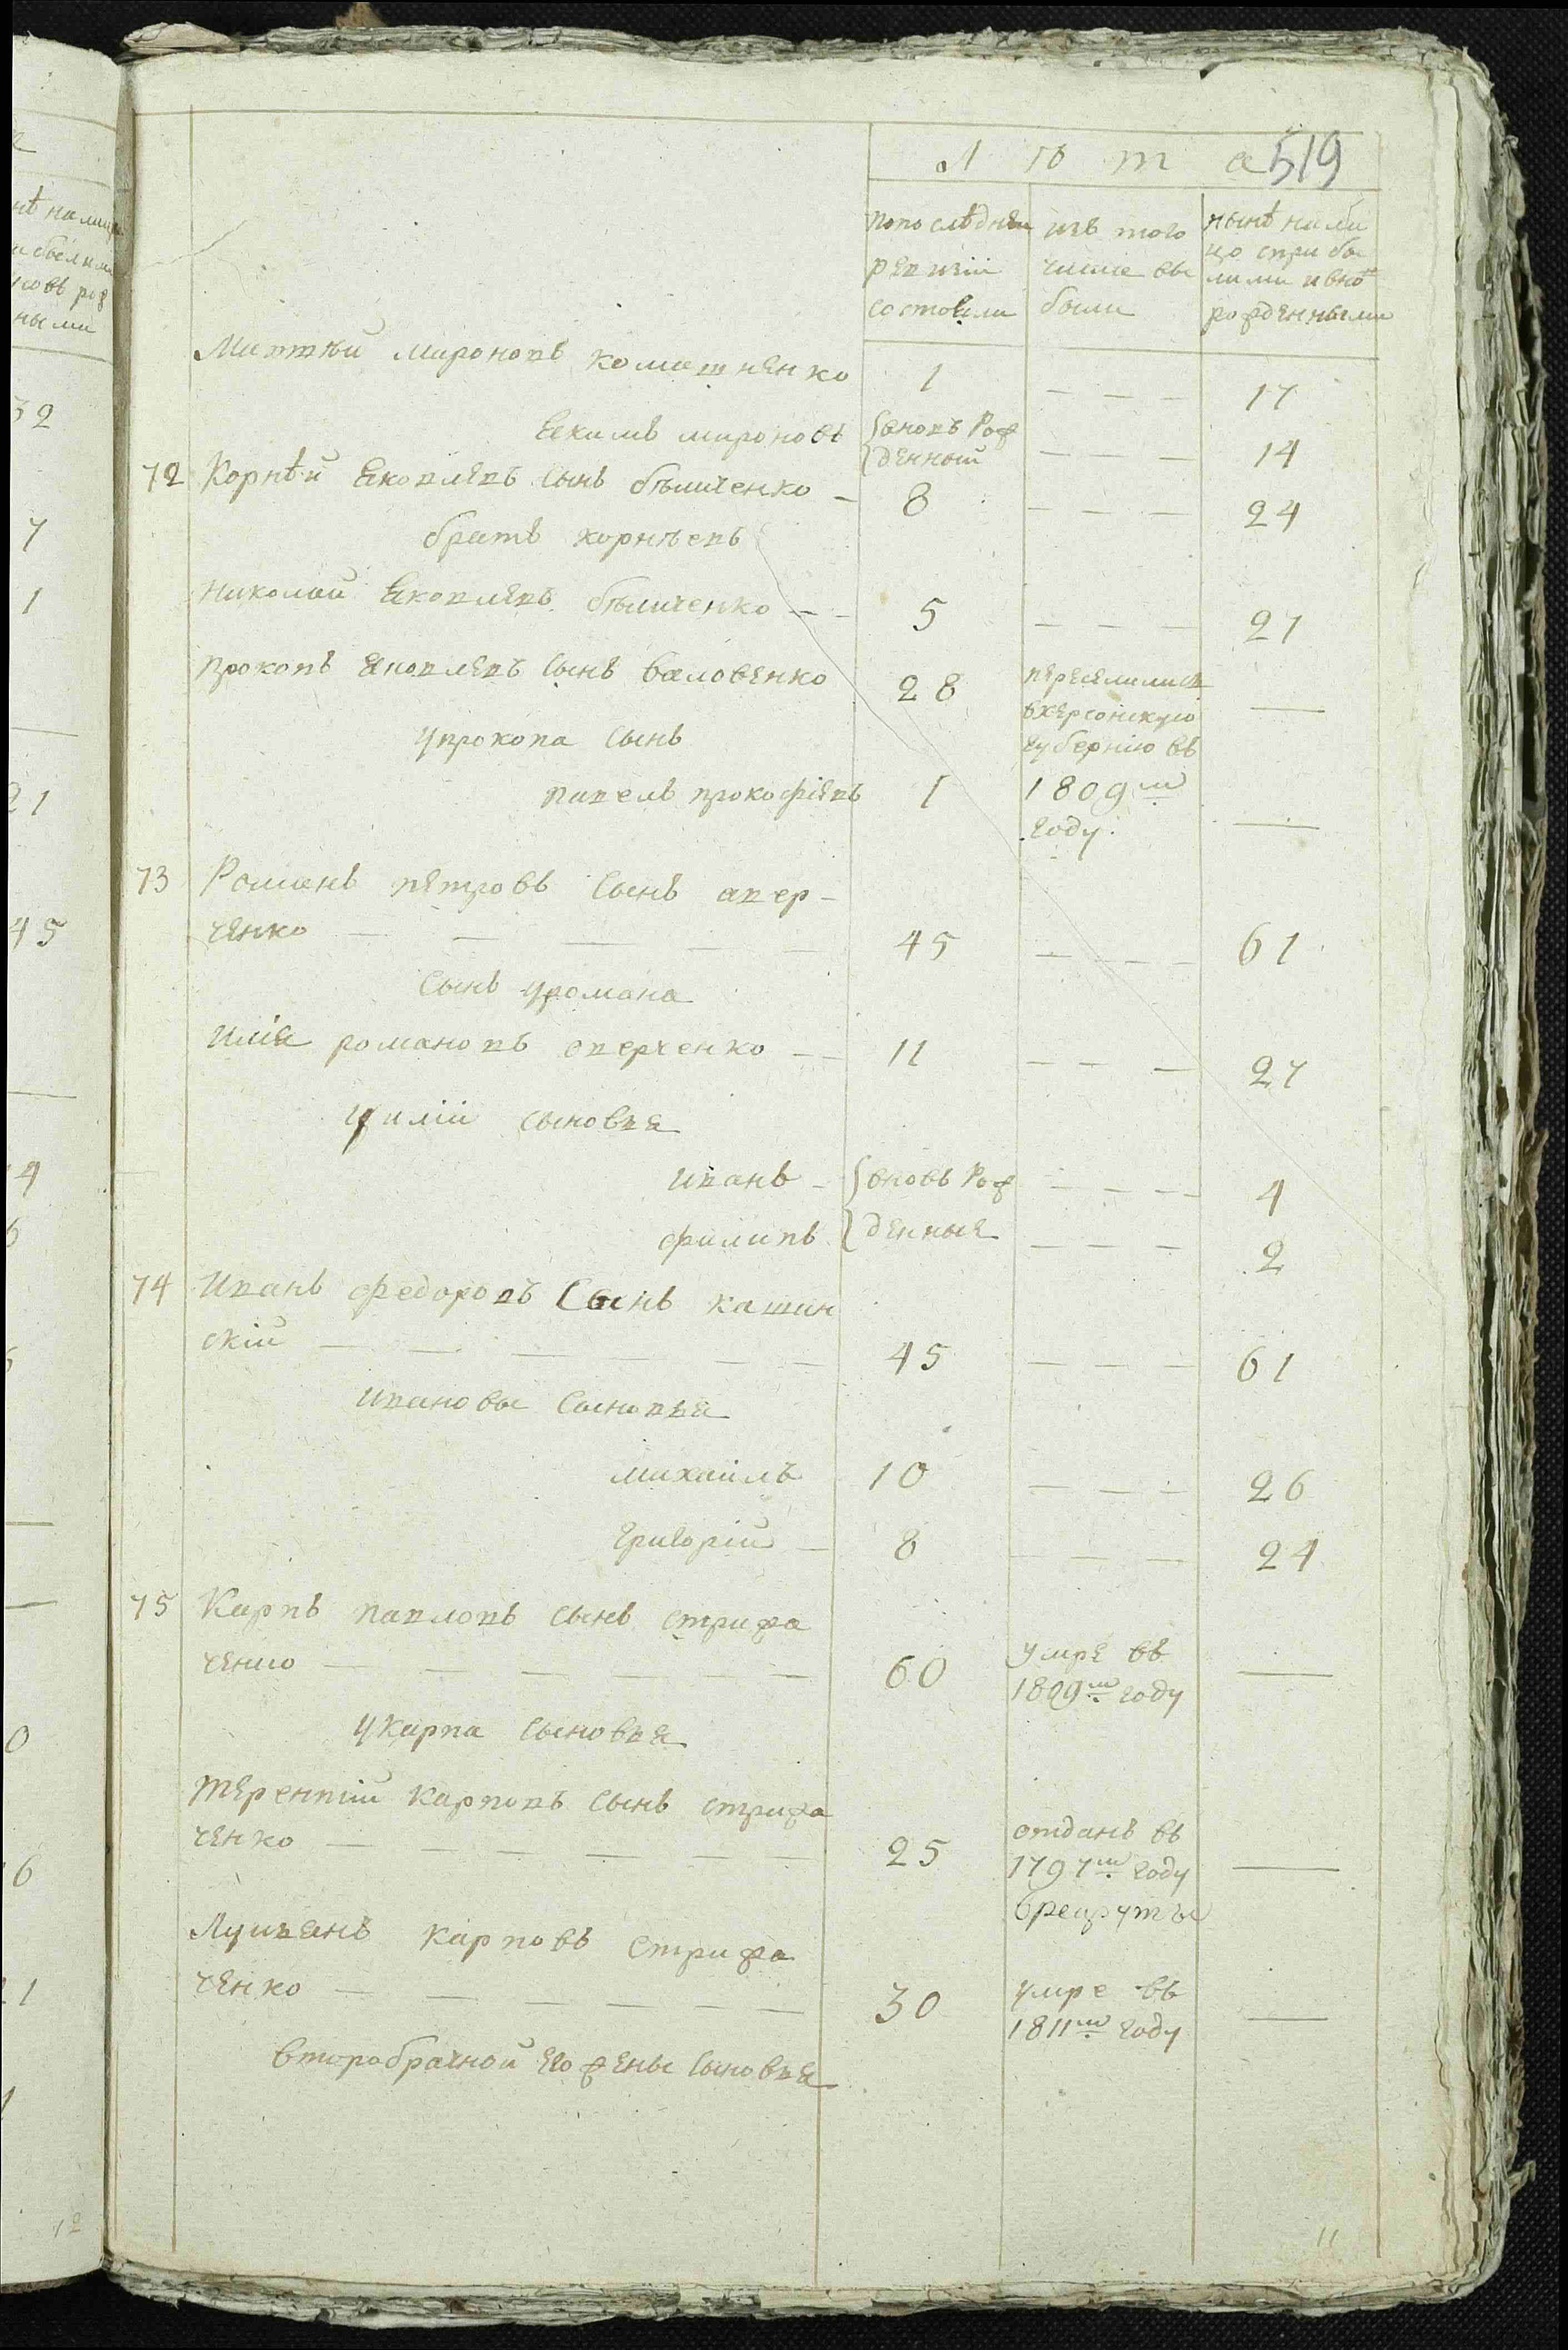 519
Л ѣ т а
попослѣдней ревизіи состояли
изъ того числа вы были
нынѣ на ли цо спри бы лыми ивно рожденными
Матѣй мироновъ 1 — — — 17
Екимъ мироновъ вновь Рож денный — — — 14
72 Корнѣй Яковлевъ сынъ бѣличенко — 8 — — — 24
братъ корнѣевъ
николай Яковлевъ бѣличенко — — 5 — — — 21
прокопъ яковлевъ сынъ баловенко 28 переселились —
упрокопа сынъ вхерсонскую губернію въ
павелъ прокофіевъ 1 1809м году —
73 Романъ петровъ сынъ авер-
ченко — — — — — 45 — — — — 61
сынъ уромана
илія романовъ аверченко — — 11 — — — 27
уиліи сыновья
иванъ — вновь Рож — — — — 4
филипъ денные — — — 2
74 иванъ федоровъ сынъ кашин
скій — — — — — — 45 — — — 61
ивановы сыновья
михайлъ 10 — — — 26
григорій — 8 — — — 24
75 Карпъ павловъ сынъ стрижа
ченко — — — — — — 60 умре въ 1809м году —
укарпа сыновья
терентій карповъ сынъ стрижа
ченко — — — — — — 25 отданъ въ 1797м году врекруты —
Лукьянъ карповъ стрижа
ченко — — — — — — 30 умре въ 1811м году —
второбрачной его жены сыновья
11